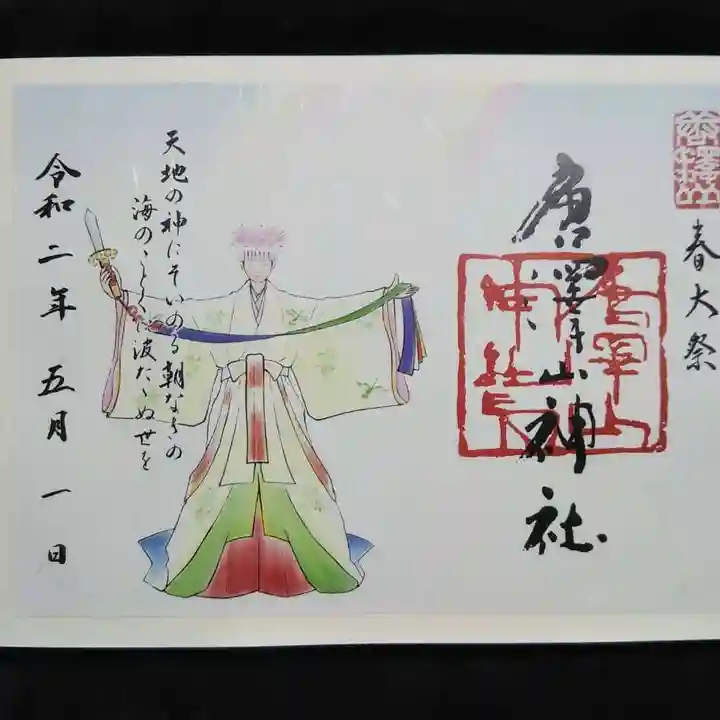 春大祭
唐澤山神社
唐澤山神社
天地の神にそいのる朝なきの
海のことくに波たゝぬ世を
令和二年五月一日